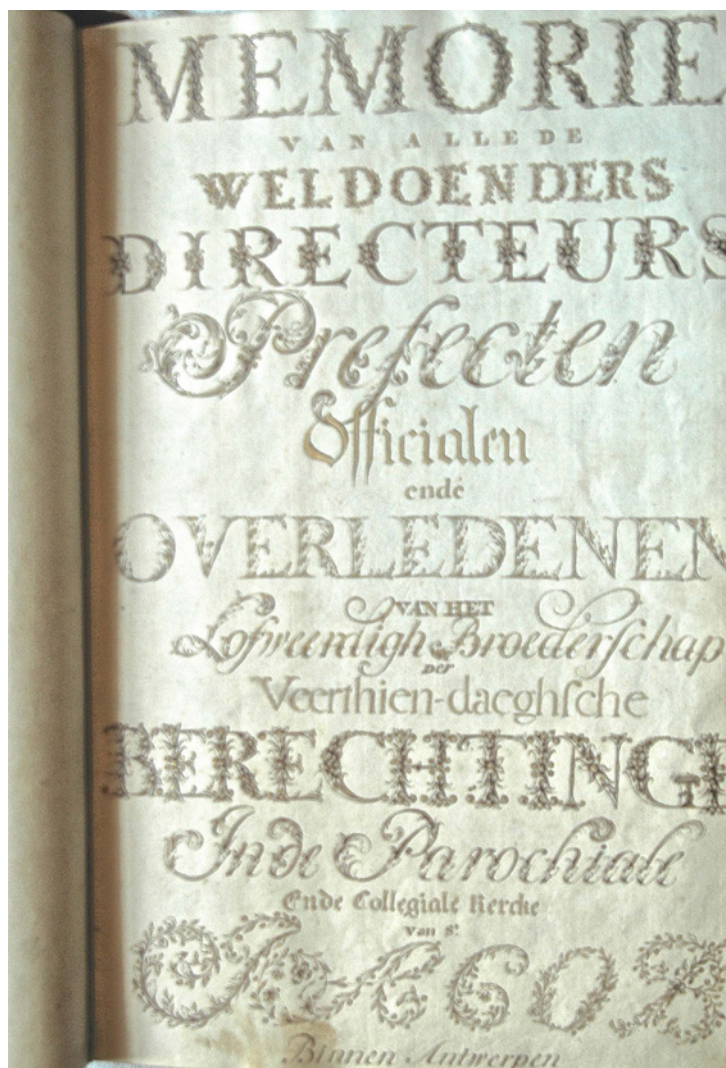 MEMORIE
VAN ALLE DE
WELDOENDERS
DIRECTEURS
Prefecten
Officialen
ende
OVERLEDENEN
VAN HET
Lofweerdigh Broederschap
der
Veerthien-daeghsche
BERECHTINGH
Inde Parochiale
Ende Collegiale Kercke
van St.
JACOB
Binnen Antwerpen